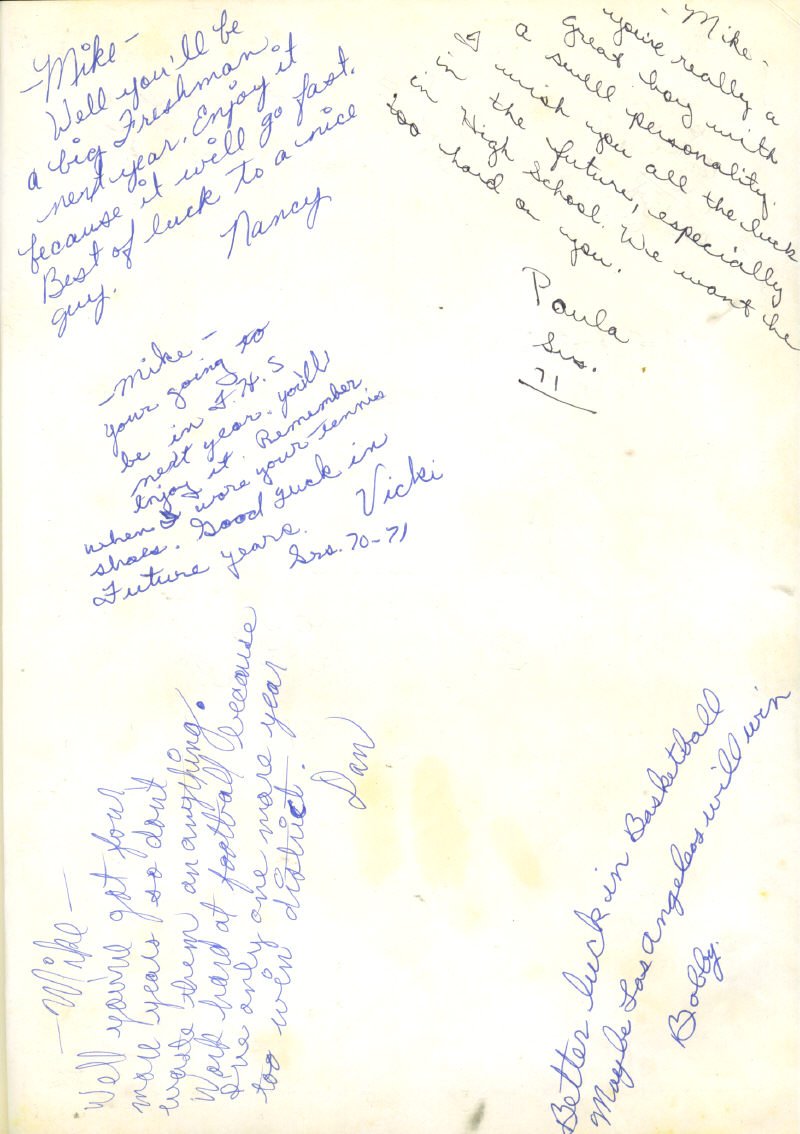 -Mike-
Well you'll be
a big Freshman
next year. Enjoy it
because it will go fast.
Best of luck to a nice
guy.
Nancy
-Mike-
you're really a
great boy with
a swell personality.
I wish you all the luck
in the future, especially
in High School. We wont be
too hard on you.
Paula
Srs.
71
-Mike-
your going to
be in F.H.S
next year. you'll
Enjoy it. Remember
when I wore your tennis
shoes. Good Luck in
Future years.
Vicki
Srs. 70-71
-Mike-
Well you've got four
more years so don't
waste them on anything.
Work hard at football because
I've only one more year
too win district.
Dan
Better luck in Basketball
Maybe Los Angeleos will win
Bobby.